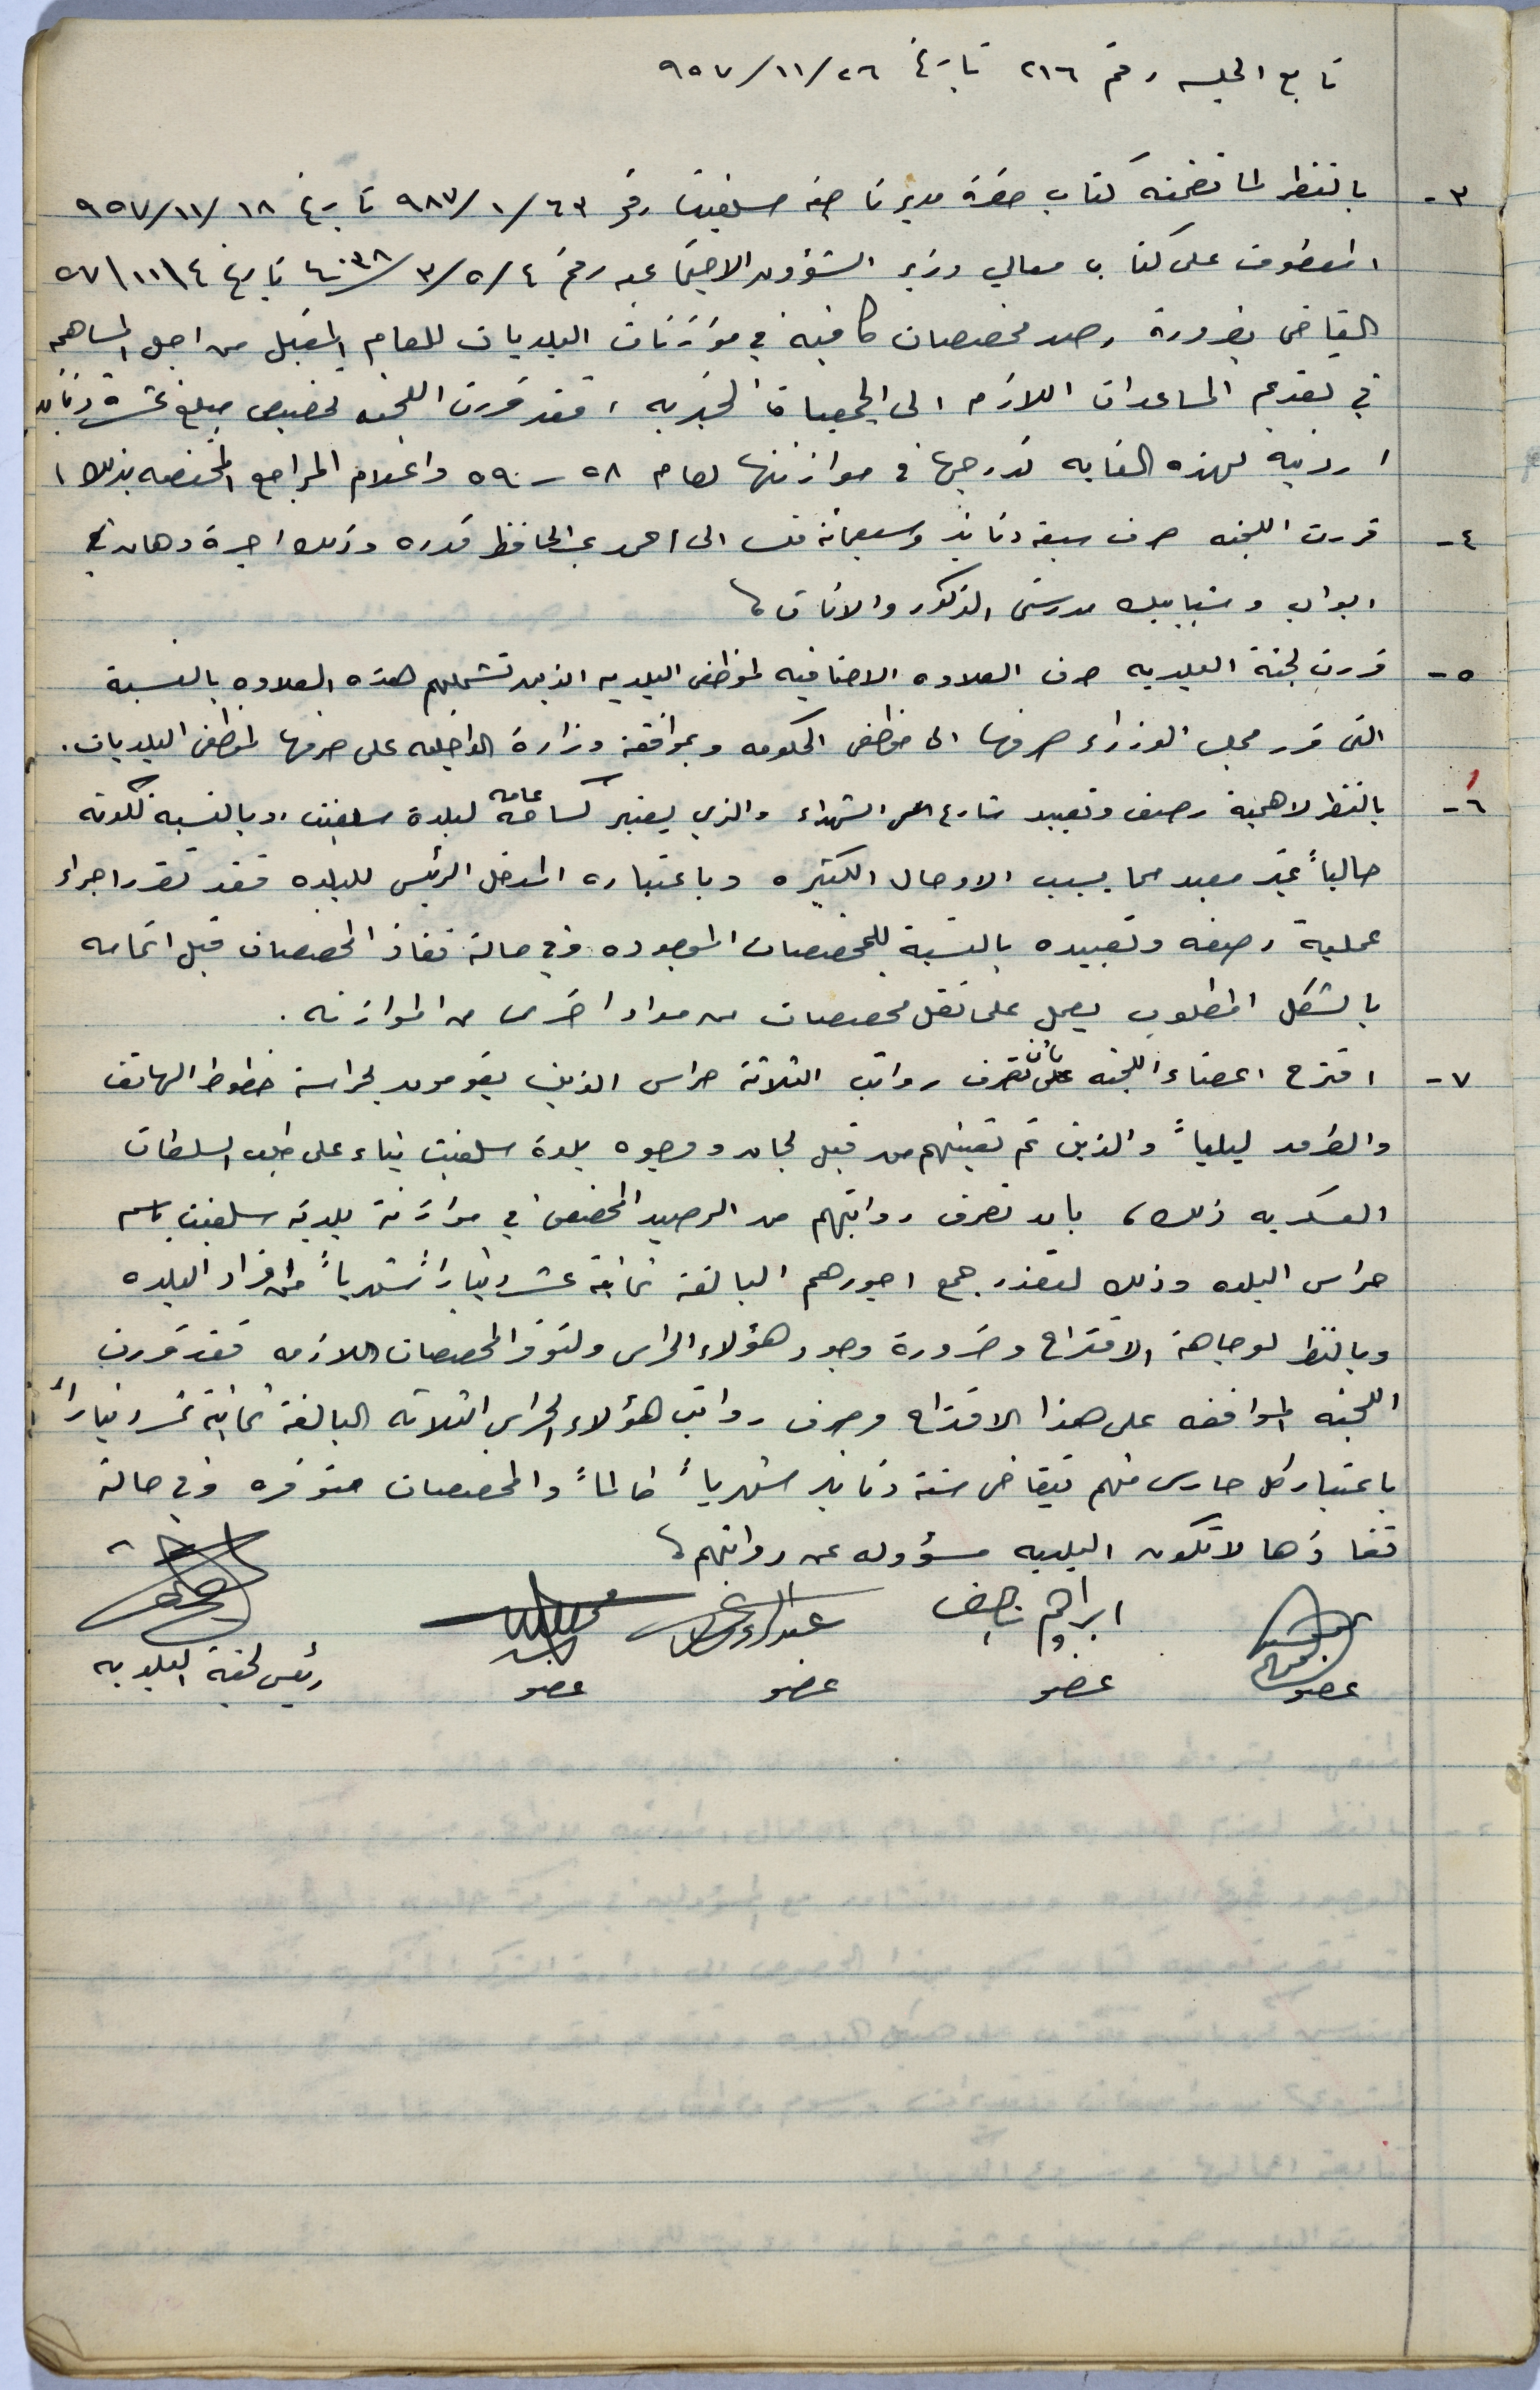 تابع الجلسه رقم ٢١٦ تاريخ ٢٦/١١/٩٥٧
٣- بالنظر لما تضمنه كتاب حضرة مدير ناحية سلفيت رقم ٦٣/١/٩٨٧ تاريخ ١٨/١١/٩٥٧
المعطوف على كتاب معالي وزير الشؤون الاجتماعيه رقم ٤/٥/٣/ تاريخ ٤\١١\٥٧
القاضي بضرورة رصد مخصصات كافيه في موازنات البلديات للعام المقبل من اجل المساهمه
في تقديم المساعدات اللازم الى الجمعيات الخيريه ، فقد قررت اللجنه تخصيص مبلغ عشرة دنانير
اردنيه لهذه الغايه تدرجها في موازنتها لعام ٥٨ - ٥٩ واعلام المراجع المختصه بذلك ،
٤- قررت اللجنه صرف سبعة دنانير وسبعمائة فلس الى احمد عبد الحافظ قدره وذلك اجرة دهان
ابواب وشبابيك مدرستي الذكور والاناث ،
٥- قررت لجنة البلديه صرف العلاوه الاضافيه لموظفي البلديه الذين تشملهم هذه العلاوه بالنسبة
التي قرر مجلس الوزراء صرفها الى موظفي الحكومه وبموافقة وزارة الداخليه على صرفها لموظفي البلديات .
٦- بالنظر لاهمية رصف وتعبيد شارع الشهداء والذي يعتبر كساحة عامه لبلدة سلفيت ، وبالنسبه لكونه
حالياً غير معبد مما يسبب الاوحال الكثيره وباعتباره المدخل الرئيس للبلده فقد تقرر اجراء
عملية رصفه وتعبيده بالنسبة للمخصصات الموجوده وفي حالة نفاذ المخصصات قبل اتمامه
بالشكل المطلوب يعمل على نقل مخصصات من مواد اخرى من الموازنه .
٧- اقترح اعضاء اللجنه بأن تصرف رواتب الثلاثة حراس الذين يقومون بحراسة خطوط الهاتف
والطرق ليلياً والذين تم تعيينهم من قبل لجان ووجوه بلدة سلفيت بناء على طلب السلطات
العسكريه ذلك ، بان تصرف رواتبهم من الرصيد المخصص في موازنة بلدية سلفيت باسم
حراس البلده وذلك لتعذر جمع اجورهم البالغة ثمانية عشر ديناراً شهرياً من افراد البلده
وبالنظر لوجاهة الاقتراح وضرورة وجود هؤلاء الحراس ولتوفر المخصصات اللازمه فقد قررت
اللجنه الموافقه على هذا الاقتراح وصرف رواتب هؤلاء الحراس الثلاثه البالغة ثمانية عشر ديناراً
باعتبار كل حارس منهم يتقاضى ستة دنانير شهرياً طالماً والمخصصات متوفره وفي حالة
نفاذها لا تكون البلديه مسؤوله عن رواتبهم ،
ابراهيم ناصيف
عضو عضو عضو عضو رئيس لجنة البلديه